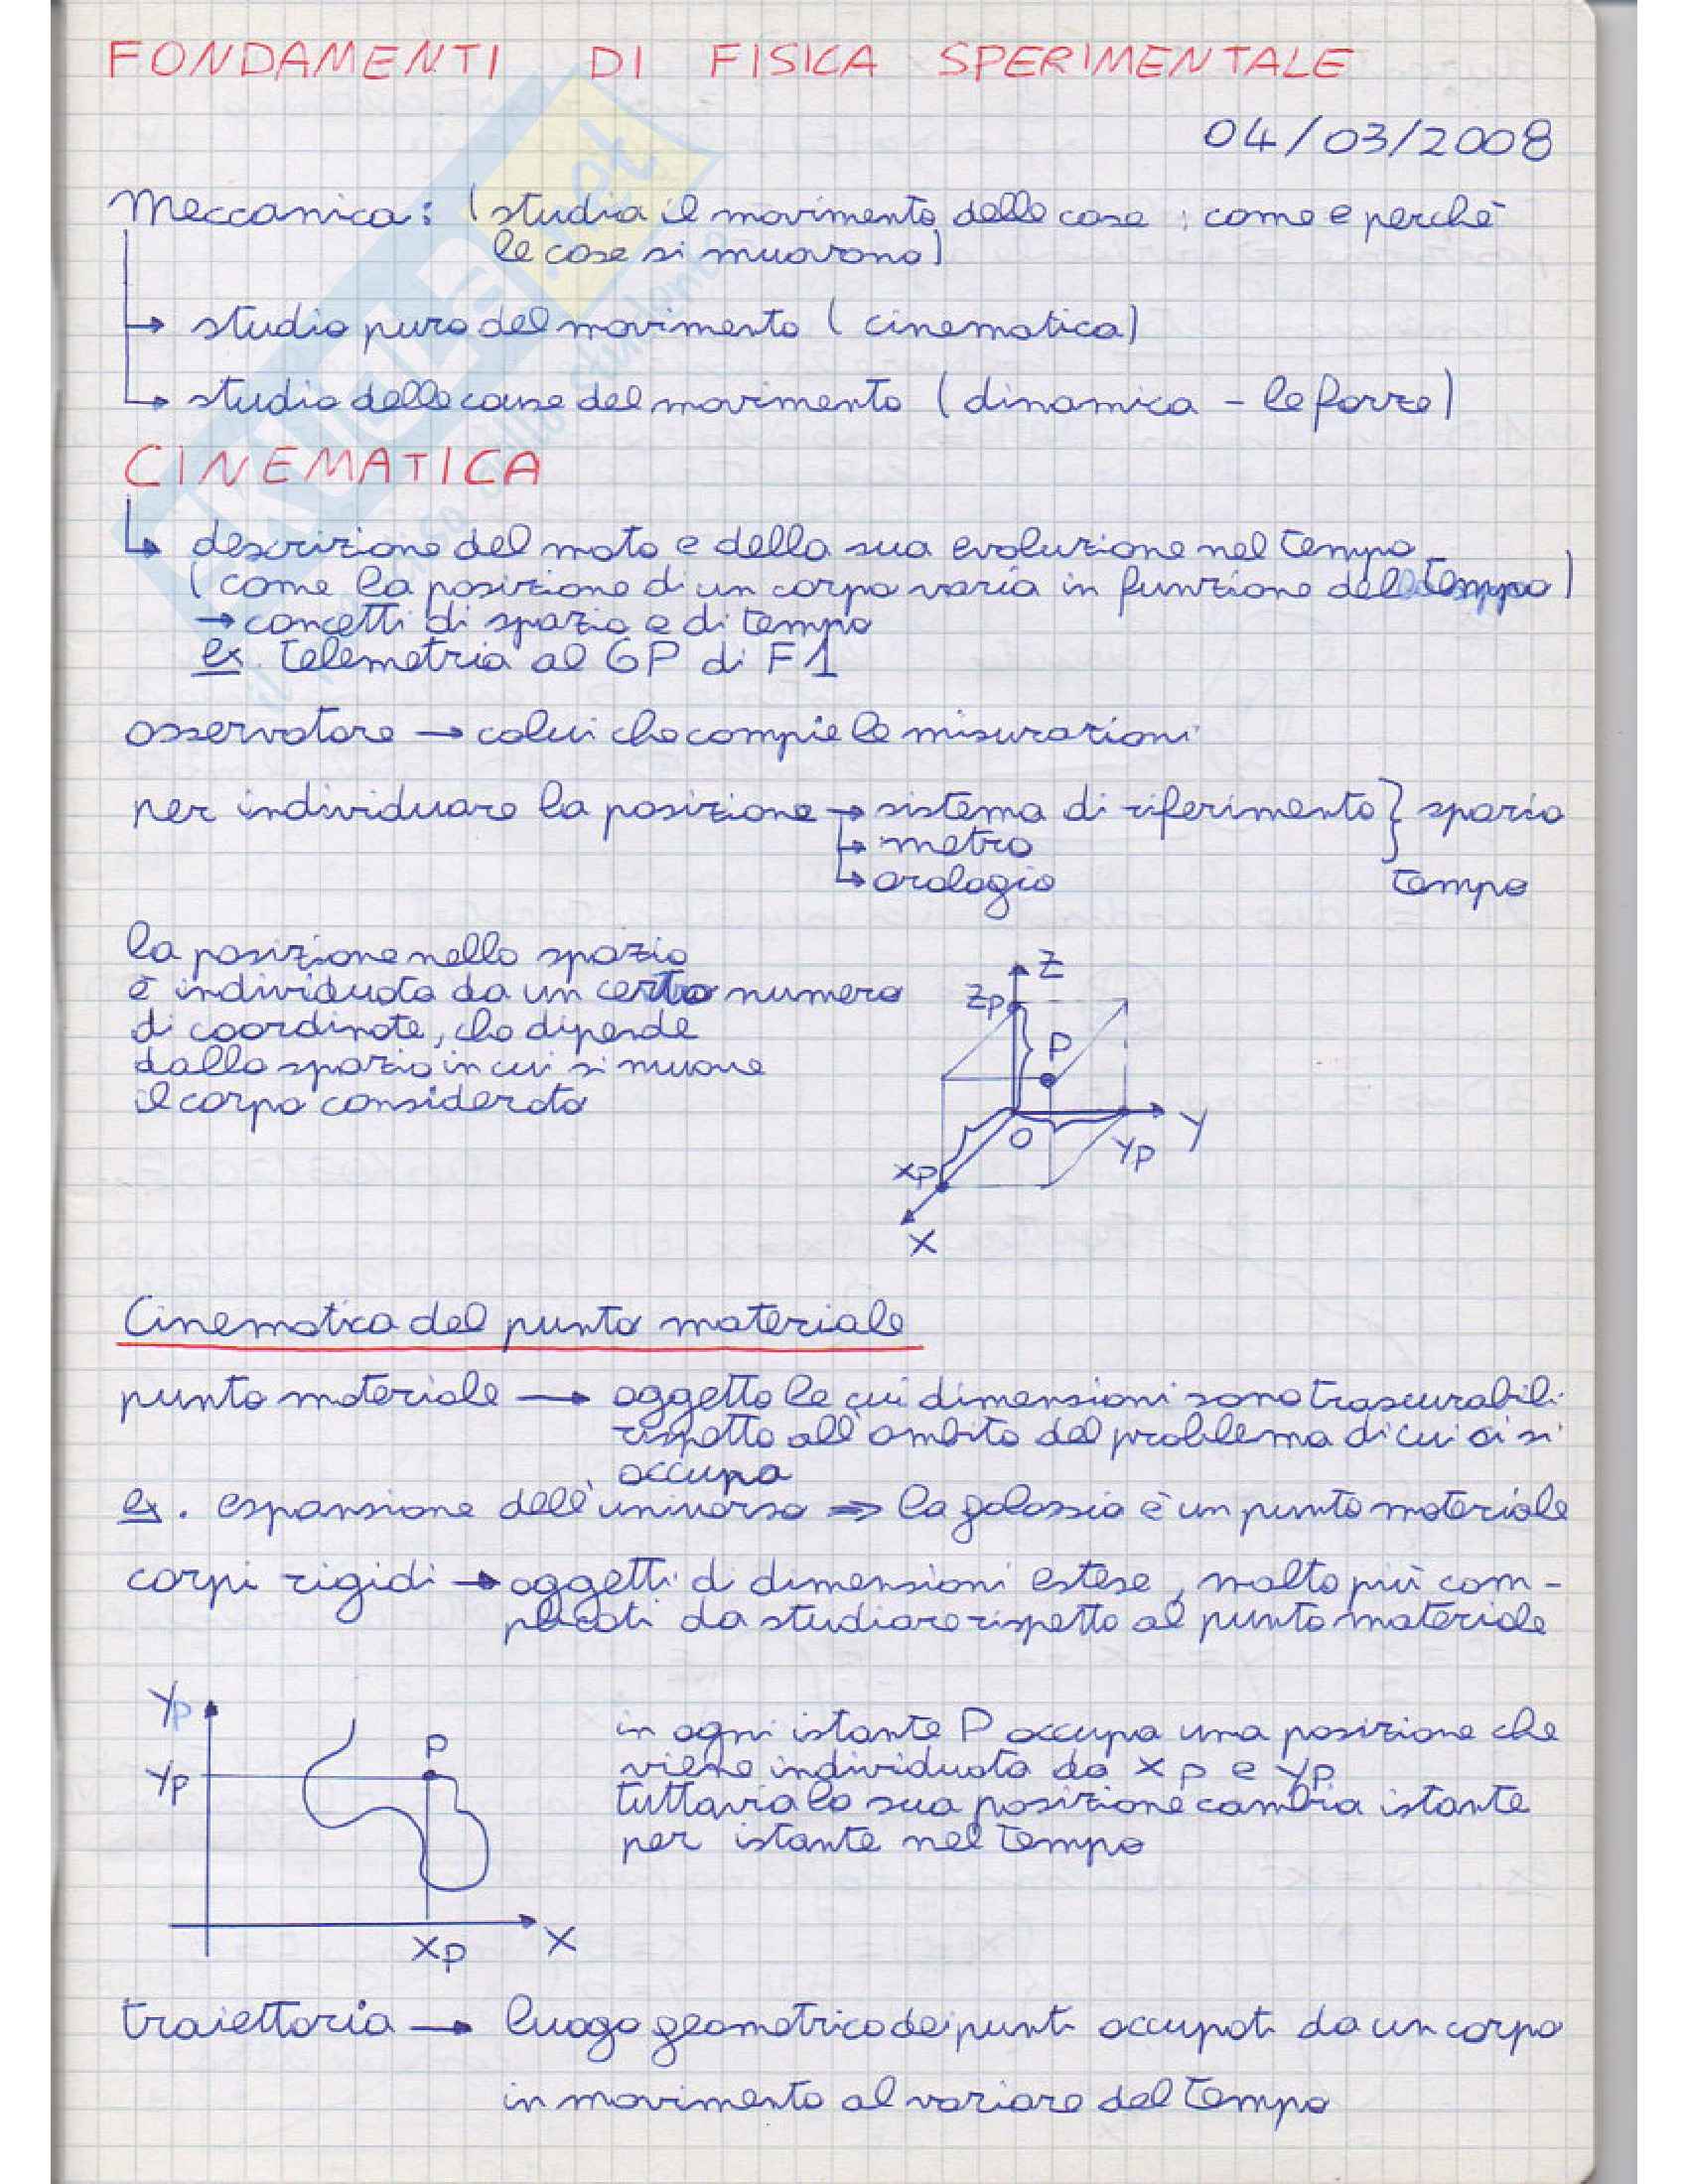 FONDAMENTI DI FISICA SPERIMENTALE
04/03/2008
Meccanica: (studia il movimento delle cose: come e perchè
le cose si muovono)
→ studio puro del movimento (cinematica)
→ studio delle cause del movimento (dinamica - le forze)
CINEMATICA
→ descrizione del moto e della sua evoluzione nel tempo
(come la posizione di un corpo varia in funzione del tempo)
→ concetti di spazio e di tempo
ex. telemetria al GP di F1
osservatore → colui che compie le misurazioni
per individuare la posizione → sistema di riferimento } spazio
→ metro
→ orologio tempo
la posizione nello spazio
è individuata da un certo numero
di coordinate, che dipende
dallo spazio in cui si muove
il corpo considerato
Z
Zp
P
O
Y
Yp
Xp
X
Cinematica del punto materiale
punto materiale → oggetto le cui dimensioni sono trascurabili
rispetto all'ambito del problema di cui ci si
occupa
ex. espansione dell'universo ⇒ la galassia è un punto materiale
corpi rigidi → oggetti di dimensioni estese, molto più com-
plicati da studiare rispetto al punto materiale
Yp
P
Yp
X
Xp
in ogni istante P occupa una posizione che
viene individuata da Xp e Yp
tuttavia la sua posizione cambia istante
per istante nel tempo
traiettoria → luogo geometrico dei punti occupati da un corpo
in movimento al variare del tempo